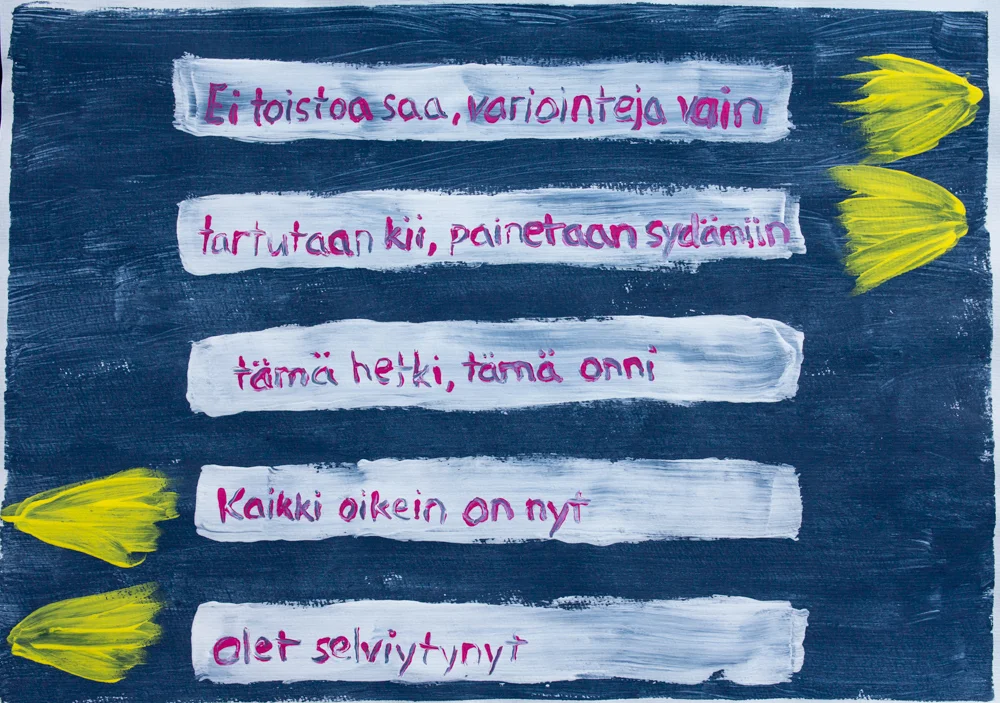 Ei toistoa saa, variointeja vain
tartutaan kii, painetaan sydämiin
tämä hetki, tämä onni
Kaikki oikein on nyt
olet selviytynyt